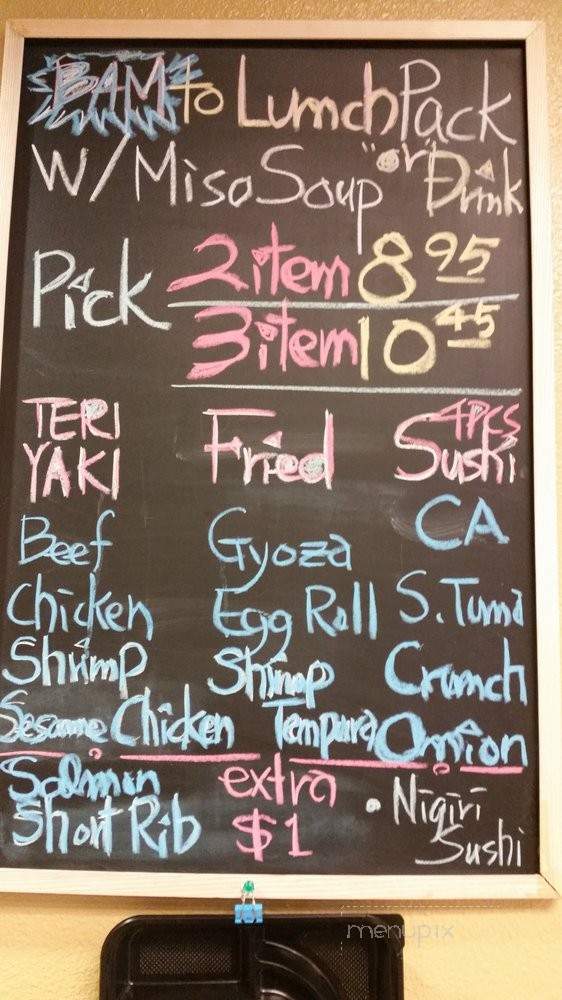 BAM to Lunch Pack
W/Miso Soup "or" Drink
Pick
2 item 8 95
3 item 10 45
TERI
YAKI
Fried
4PCS
Sushi
Beef
Chicken
Shrimp
Sesame Chicken
Gyoza
Egg Roll
Shrimp
Tempura
CA
S. Tuna
Crunch
Onion
Salmon
Short Rib
extra
$1
• Nigiri
Sushi
menupix